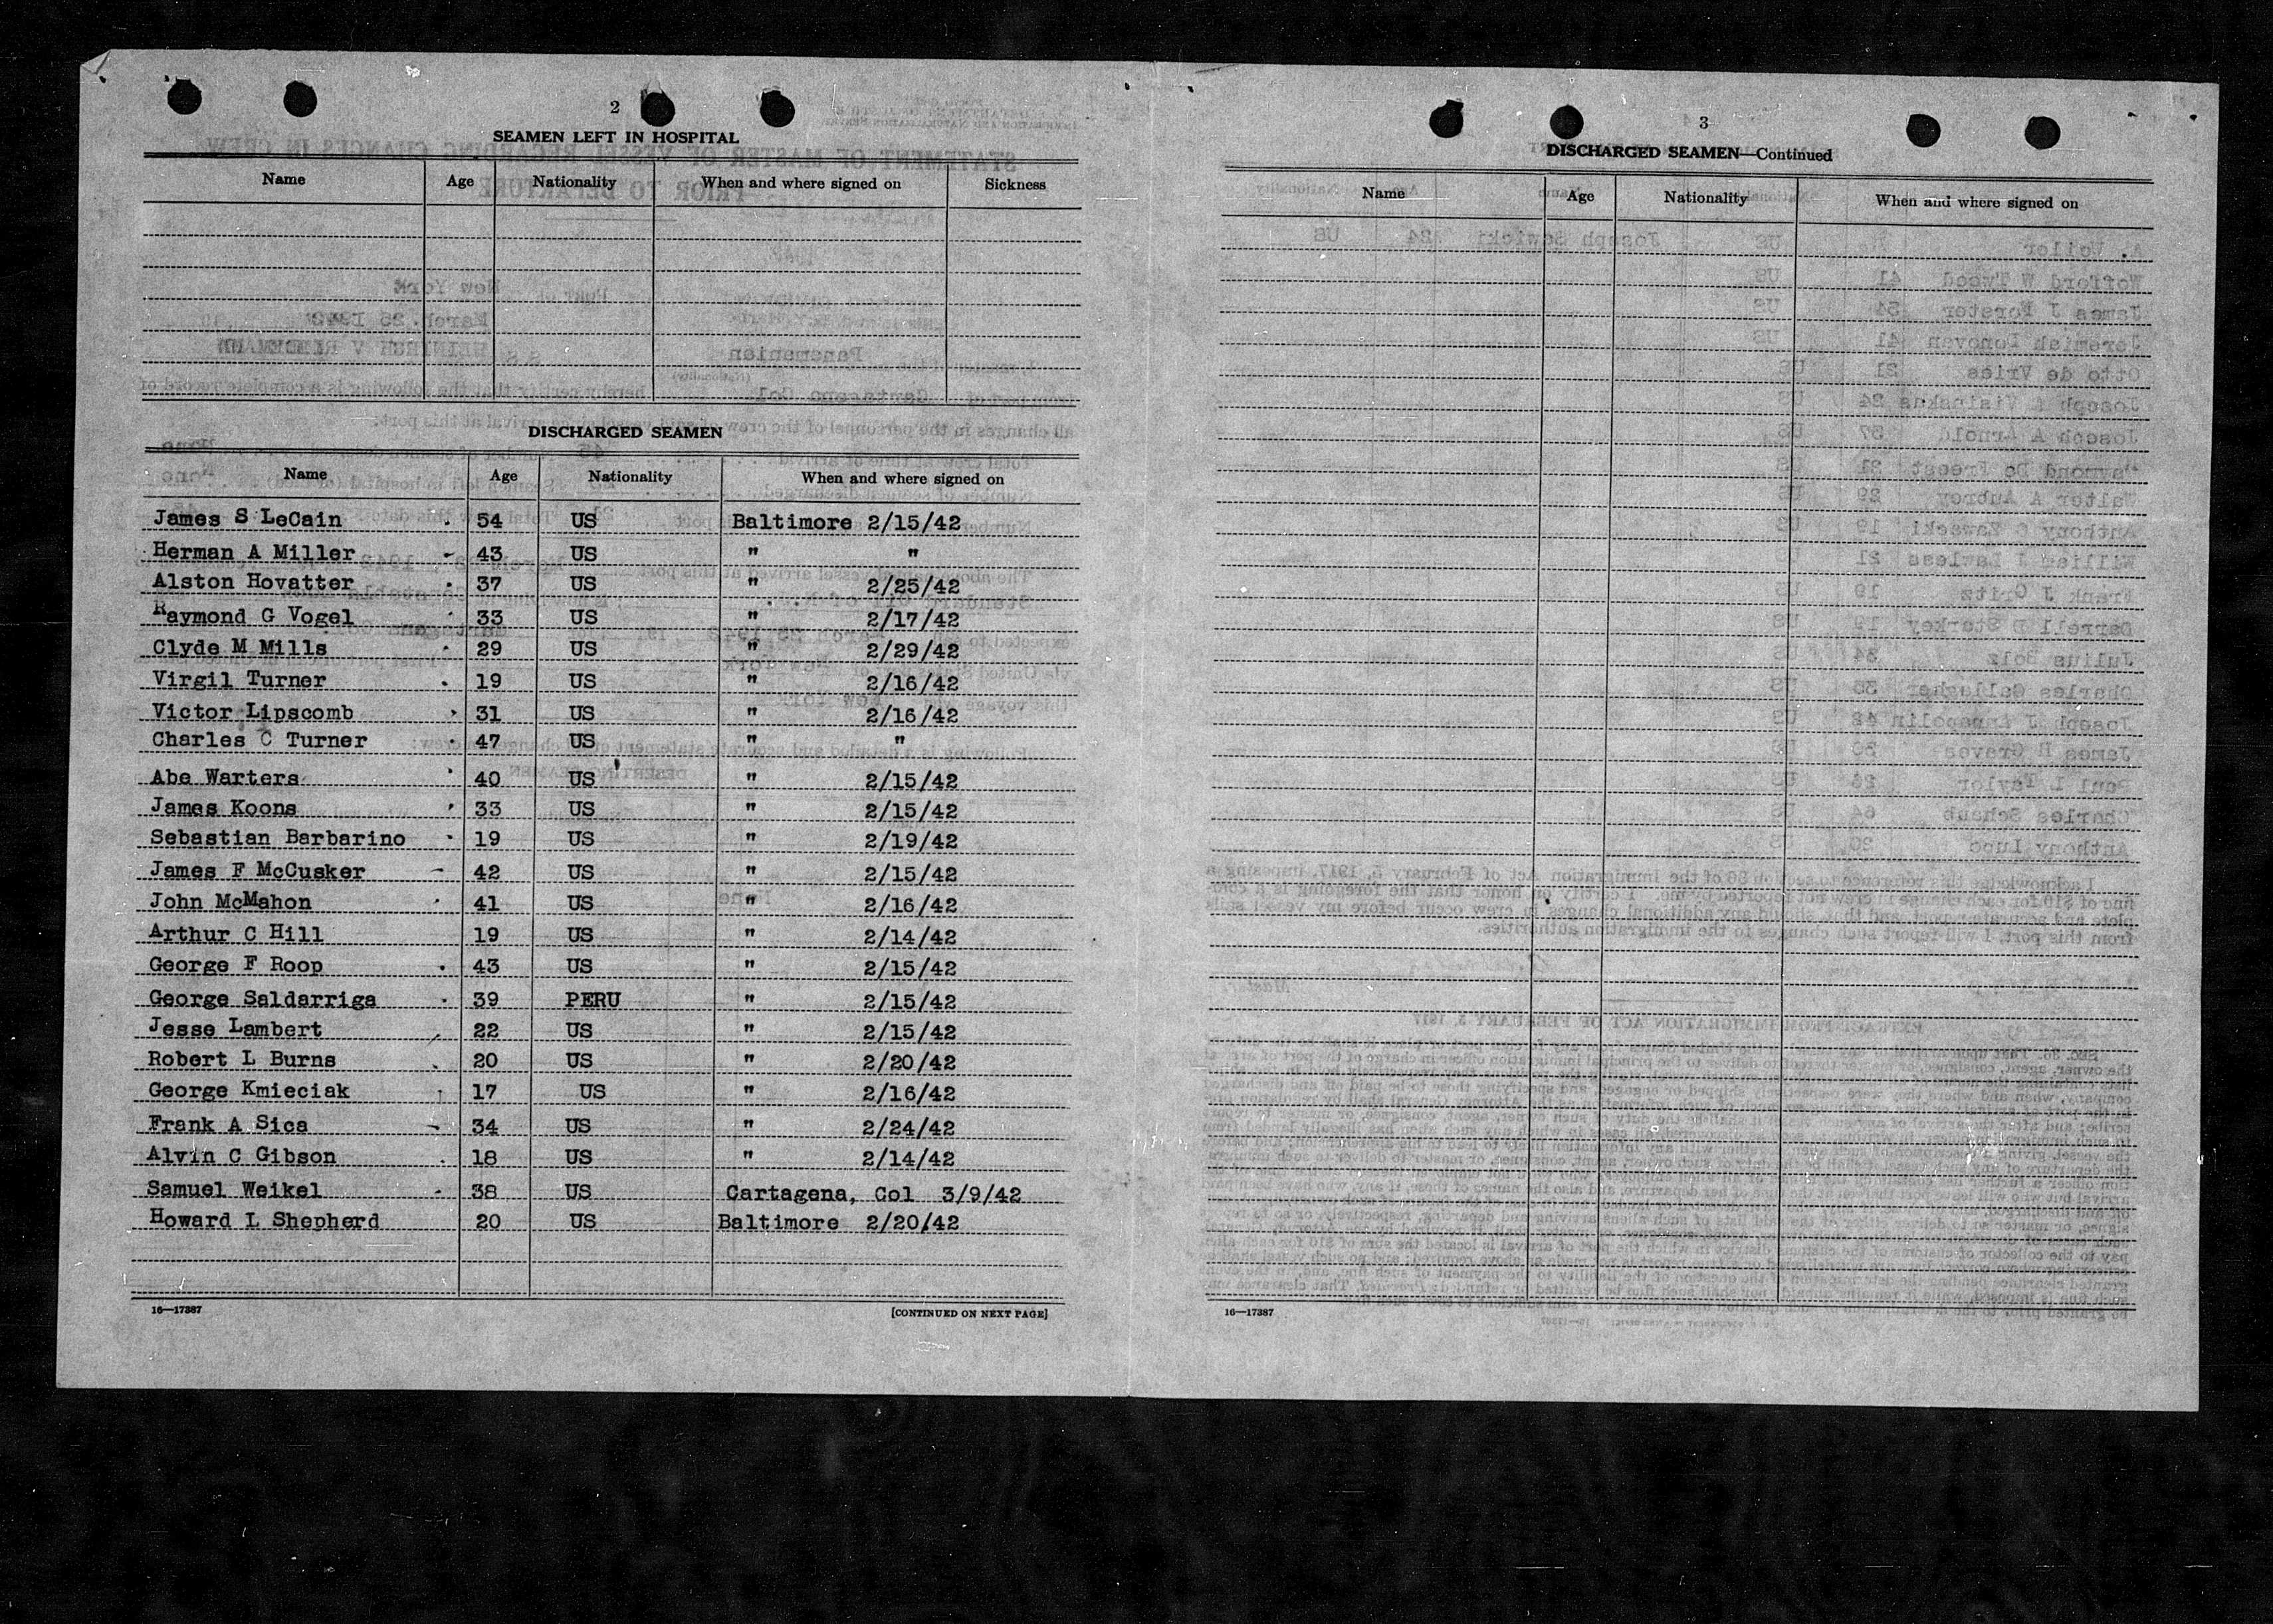 2
SEAMEN LEFT IN HOSPITAL
Name Age Nationality When and where signed on Sickness
DISCHARGED SEAMEN
Name Age Nationality When and where signed on
James S LeCain 54 US Baltimore 2/15/42
Herman A Miller 43 US " "
Alston Hovatter 37 US " 2/25/42
Raymond G Vogel 33 US " 2/17/42
Clyde M Mills 29 US " 2/29/42
Virgil Turner 19 US " 2/16/42
Victor Lipscomb 31 US " 2/16/42
Charles C Turner 47 US " "
Abe Warters 40 US " 2/15/42
James Koons 33 US " 2/15/42
Sebastian Barbarino 19 US " 2/19/42
James F McCusker 42 US " 2/15/42
John McMahon 41 US " 2/16/42
Arthur C Hill 19 US " 2/14/42
George F Roop 43 US " 2/15/42
George Saldarriga 39 PERU " 2/15/42
Jesse Lambert 22 US " 2/15/42
Robert L Burns 20 US " 2/20/42
George Kmieciak 17 US " 2/16/42
Frank A Sica 34 US " 2/24/42
Alvin C Gibson 18 US " 2/14/42
Samuel Weikel 38 US Cartagena, Col 3/9/42
Howard L Shepherd 20 US Baltimore 2/20/42
16—17387 [CONTINUED ON NEXT PAGE]
3
DISCHARGED SEAMEN—Continued
Name Age Nationality When and where signed on
16—17387